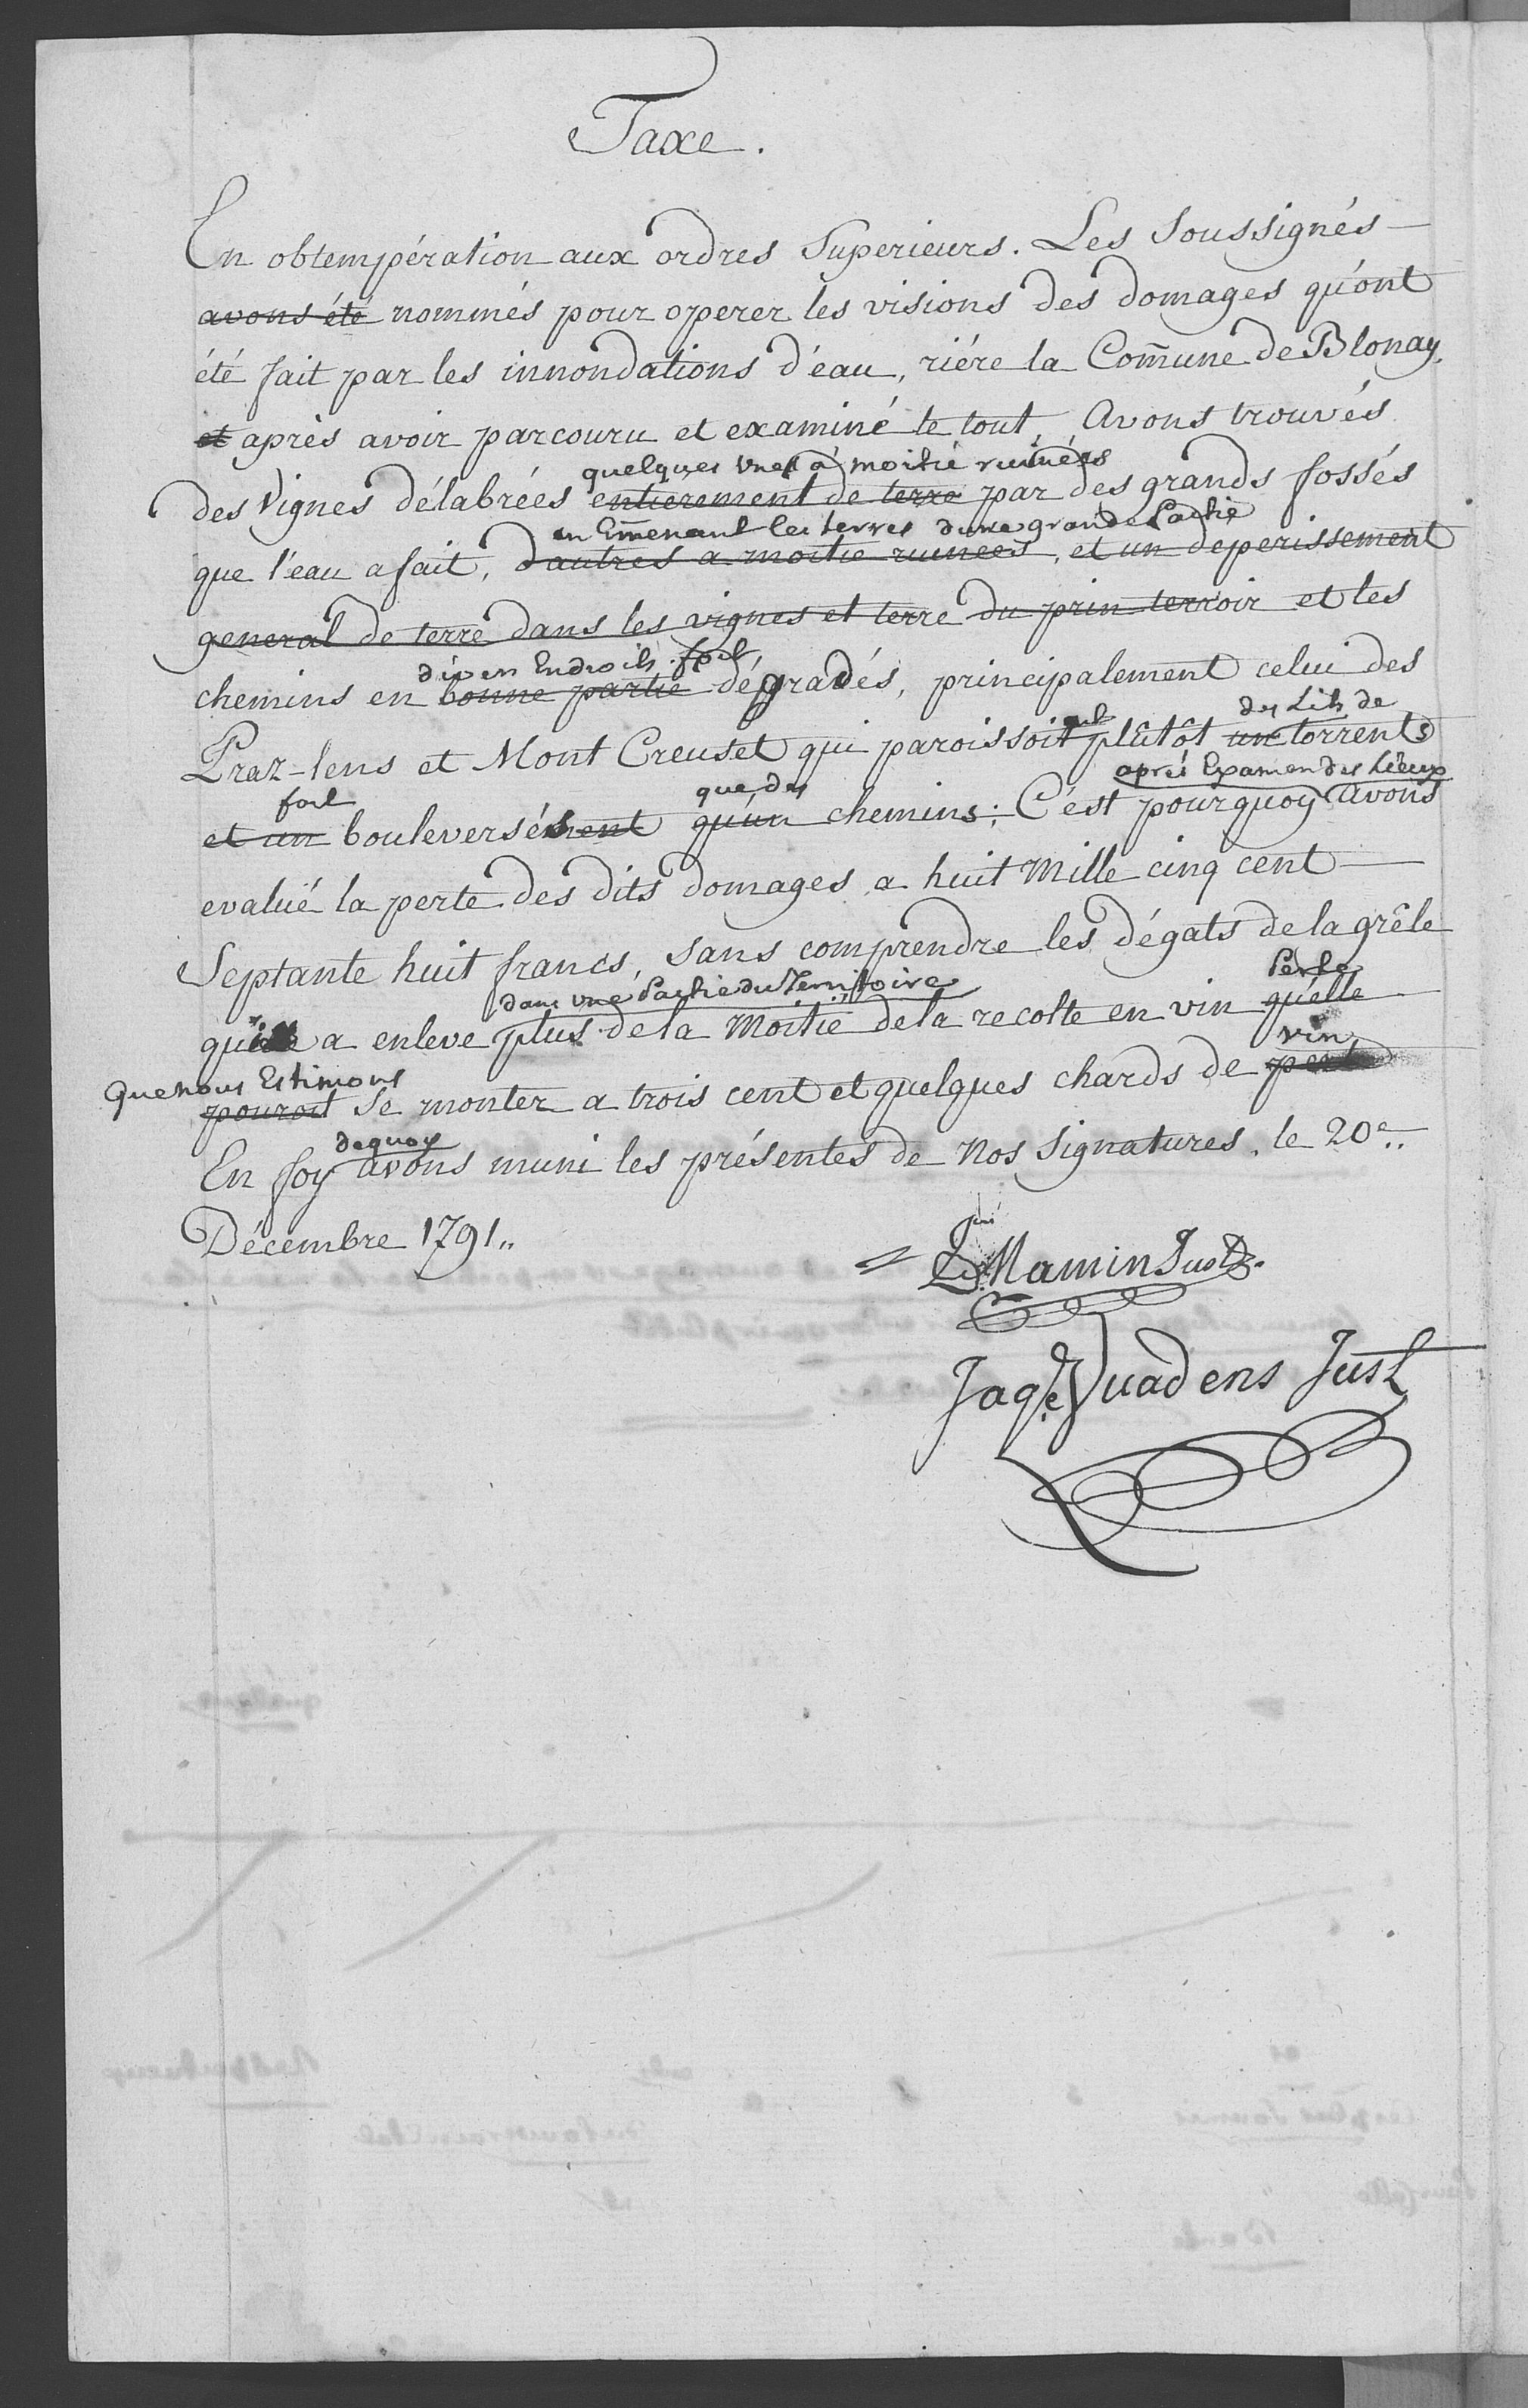 Taxe.
En obtempération aux ordres Superieurs. Les Soussignés
avons été nommés pour operer les visions des domages qu'ont
été fait par les innondations d'éau, riére la Com̄une de Blonay.
et aprés avoir parcouru et examiné le tout, Avons trouvés
quelques unes à moitié ruinées
des Vignes délabrées entierement de terre par des grands fossés
en Em̄enant les terres d'une grande Partie
que l'éau a fait, d'autres a moitié ruinees, et un deperissement
general de terre dans les vignes et terre du prin terroir et les
divers Endroits fort
chemins en bonne partie dégradés, principalement celui des
des Lits de
Praz-lens et Mont Creuset qui paroissoit plûtôt un torrents
fort que des aprés Examen des Lieux
et un bouleversément qu'un chemins; C'ést pourquoy avons
evalué la perte des dits domages a huit Mille cinq cent
Septante huit francs, Sans comprendre les dégats de la grêle
dans une Partie du Territoire Perte
qui a enleve plus de la Moitié de la recolte en vin qu'elle
Que nous Estimons vin
pouroit Se monter a trois cent et quelques chards de
de quoy
En foy avons muni les présentes de Nos Signatures, le 20e..
Décembre 1791,,
Mamin Just.
Jaqe. Duadens Just